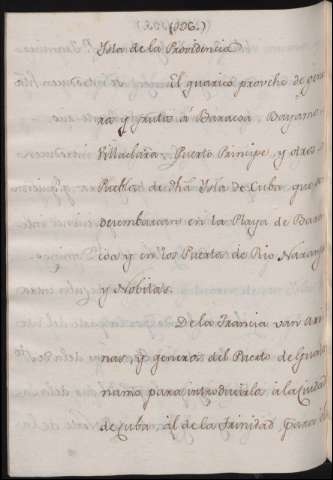 (106.)
Ysla de la Providencia
El guarico provehe de gene
ra y frutas á Baracoa, Bayamo
Villaclara, Puerto Principe y otros
Pueblos de dhã Ysla de Cuba que
desembarcan en la Playa de Bara
coa y en los Puertos de Rio Naranjo
y Nobitas.
De la Francia van Ari
nas, y generos del Puerto de Guan
namo para introducirla á la Ciudad
de Cuba, al de la Trinidad para